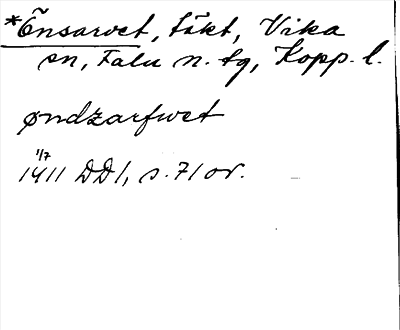 *Õnsarvet, täkt, Vika
sn, Falu n. tg, Kopp. l.
øndzarfwet
1/7
1411 DD1, s. 71 or.